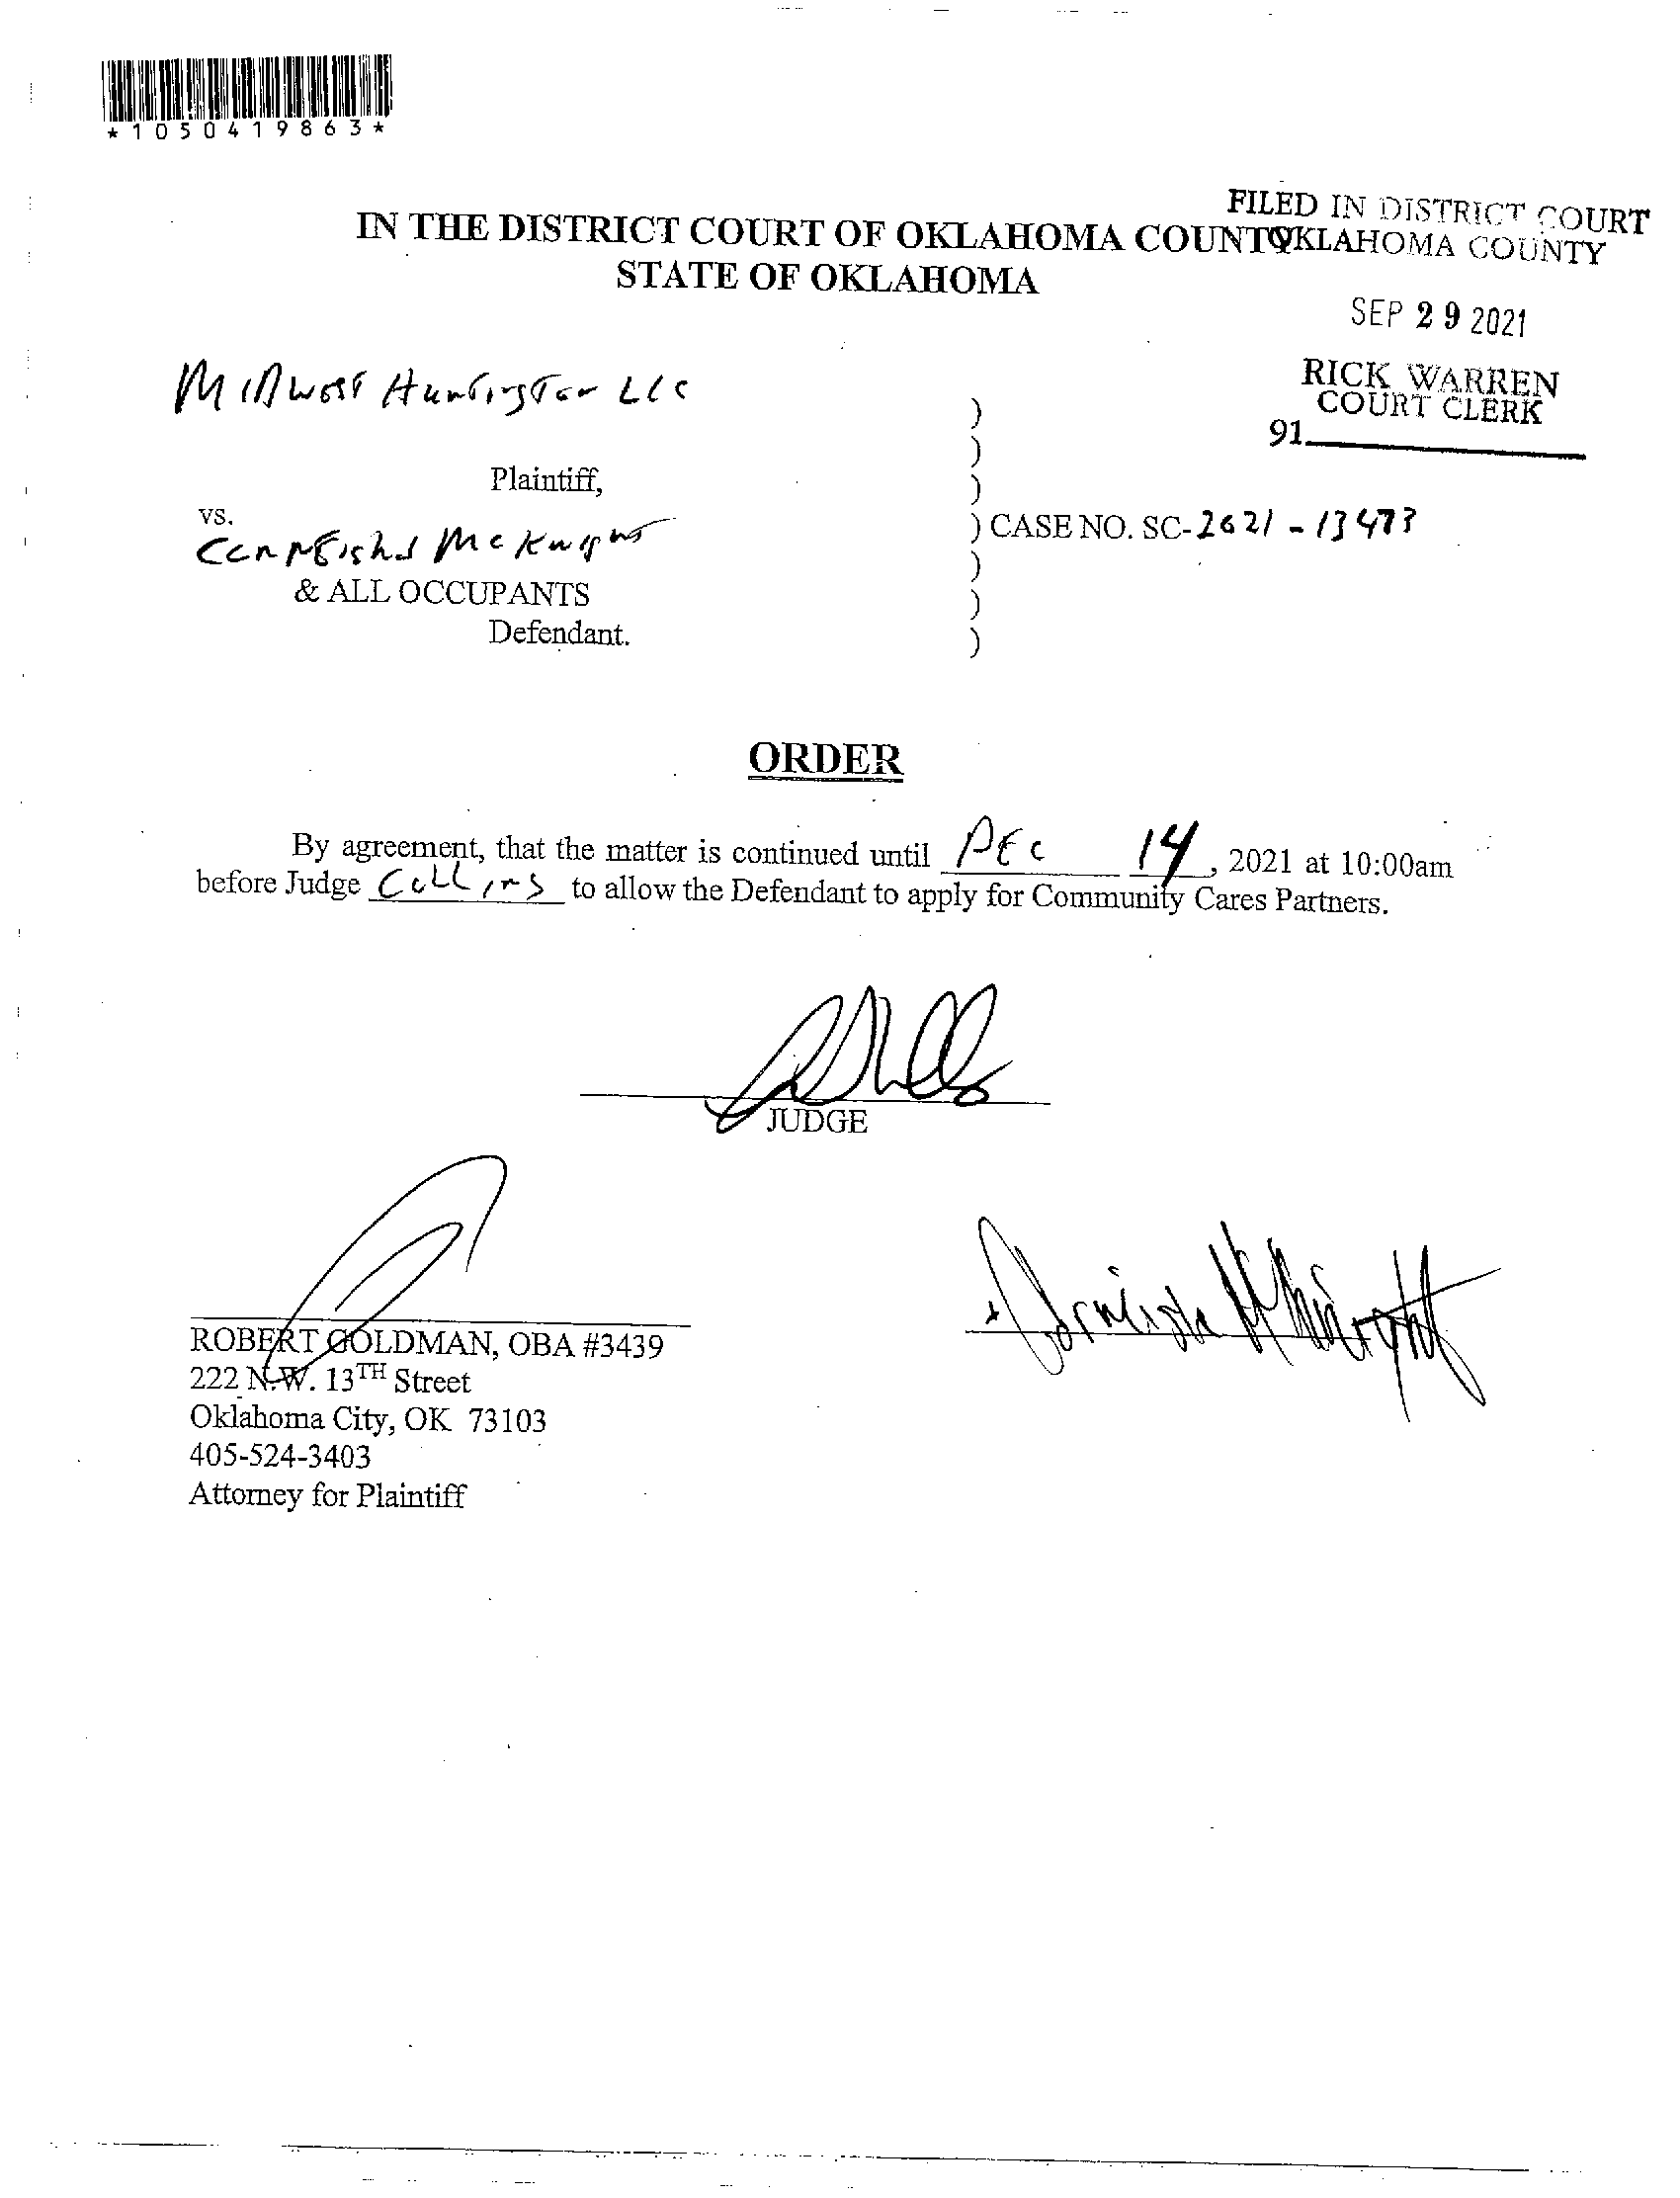 *1050419863*
FILED IN DISTRICT COURT
OKLAHOMA COUNTY
IN THE DISTRICT COURT OF OKLAHOMA COUNTY
STATE OF OKLAHOMA
SEP 29 2021
RICK WARREN
COURT CLERK
91
Midwest Huntington LLC
)
)
Plaintiff,
)
vs.
) CASE NO. SC-2021-13473
McKnight
)
& ALL OCCUPANTS
)
Defendant.
)
ORDER
By agreement, that the matter is continued until DEC 14, 2021 at 10:00am
before Judge Collins to allow the Defendant to apply for Community Cares Partners.
JUDGE
ROBERT GOLDMAN, OBA #3439
222 N.W. 13TH Street
Oklahoma City, OK 73103
405-524-3403
Attorney for Plaintiff